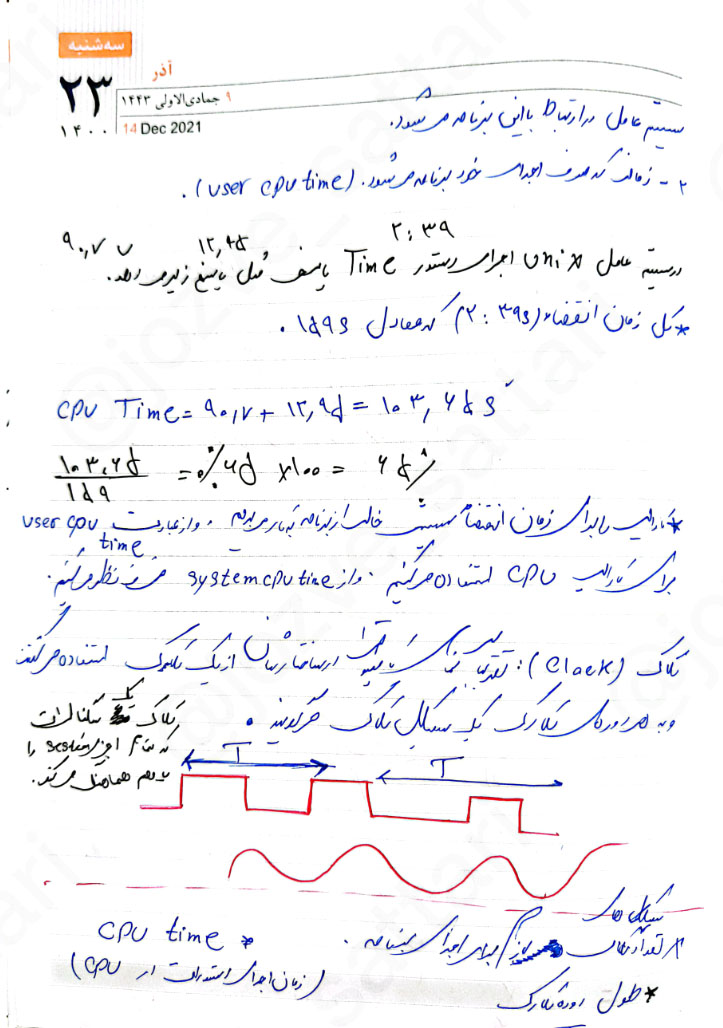 سه‌شنبه
آذر
۲۳
۹ جمادی‌الاولی ۱۴۴۳
۱۴۰۰
14 Dec 2021
سیستم عامل در ارتباط با این برنامه می‌شود.
۲- زمانی که صرف اجرای خود برنامه می‌شود. (user cpu time).
۹۰,۷ u ۱۲,۹۵ ۲:۳۹
در سیستم عامل unix اجرای دستور Time پاسخی مثل پاسخ زیر می‌دهد.
*کل زمان انقضاء (۲:۳۹s) که معادل ۱۵۹s .
CPU Time = ۹۰,۷ + ۱۲,۹۵ = ۱۰۳,۶۵ s
۱۰۳,۶۵ / ۱۵۹ = ۰,۶۵ ×۱۰۰ = ۶۵٪
*کارایی را برای زمان انقضاء سیستم خالی از برنامه به کار می‌بریم . و از عبارت user cpu time
برای کارایی CPU استفاده می‌کنیم . و از system cpu time نظر می‌کنیم.
کلاک (Clock): تقریبا تمامی کامپیوترها در ساختارشان از یک کلاک استفاده می‌کنند
و به هر دوره‌ی کلاک یک سیکل کلاک می‌گویند .
کلاک یک سیگنال است
که تمام اجزای system را
با هم هماهنگ می‌کند.
T T
سیکل های
* تعداد کلاک لازم برای اجرای برنامه .
* CPU time
(زمان اجرای دستورات در CPU)
* طول دوره کلاک